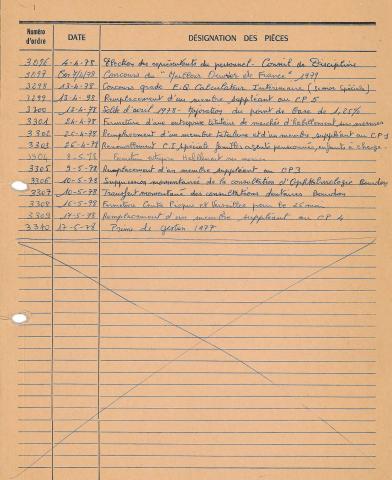 Numéro d'ordre DATE DÉSIGNATION DES PIÈCES
3296 4-4-78 Élection des représentants du personnel - Conseil de Discipline
3297 Concours du "Meilleur Ouvrier de France" 1979
3298 13-4-78 Concours grade E.Q. Calculateur Intérimaire
3299 13-4-78 Remplacement d'un membre suppléant au CP 5
3300 Solde d'avril 1978 - Majoration du point de base de 1,25%
3301 24-4-78 Fermeture d'une entreprise titulaire de marchés d'habillement sur mesures
3302 25-4-78 Remplacement d'un membre titulaire et d'un membre suppléant au CP
3303 25-4-78 Renouvellement C.I. spéciale familles agents pensionnés, enfants à charge
3304 8-5-78 habillement sur mesure
3305 9-5-78 Remplacement d'un membre suppléant au CP 3
3306 10-5-78 Suppression momentanée de la consultation d'Ophtalmologie Bourdon
3307 10-5-78 Transfert momentané des consultations dentaires Bourdon
3308 16-5-78 Fermeture Centre
3309 17-5-78 Remplacement d'un membre suppléant au CP 4
3310 17-5-78 Prime de gestion 1977